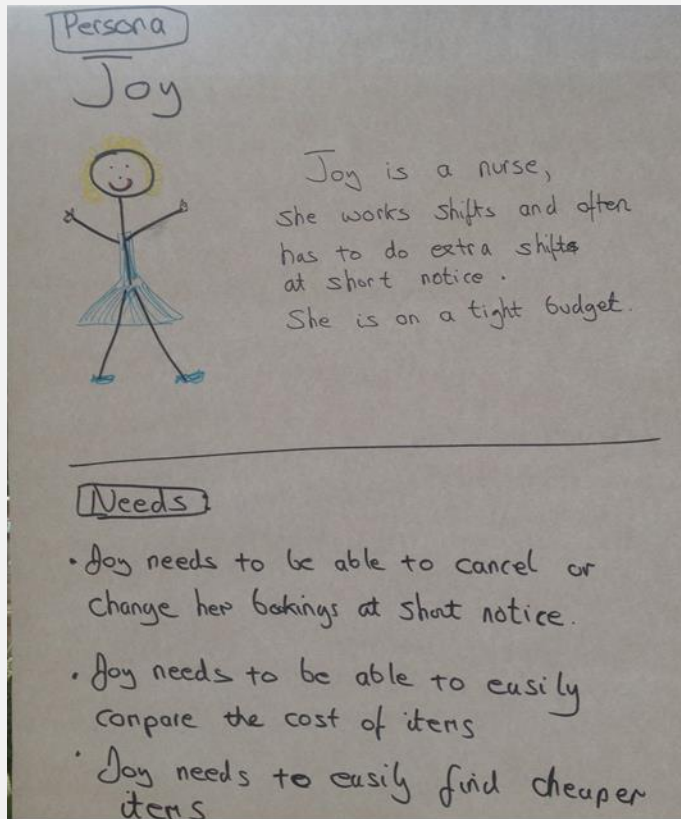 Persona
Joy
Joy is a nurse,
she works shifts and often
has to do extra shifts
at short notice.
She is on a tight budget.
Needs
• Joy needs to be able to cancel or
change her bookings at short notice.
• Joy needs to be able to easily
conpare the cost of items
• Joy needs to easily find cheaper
items